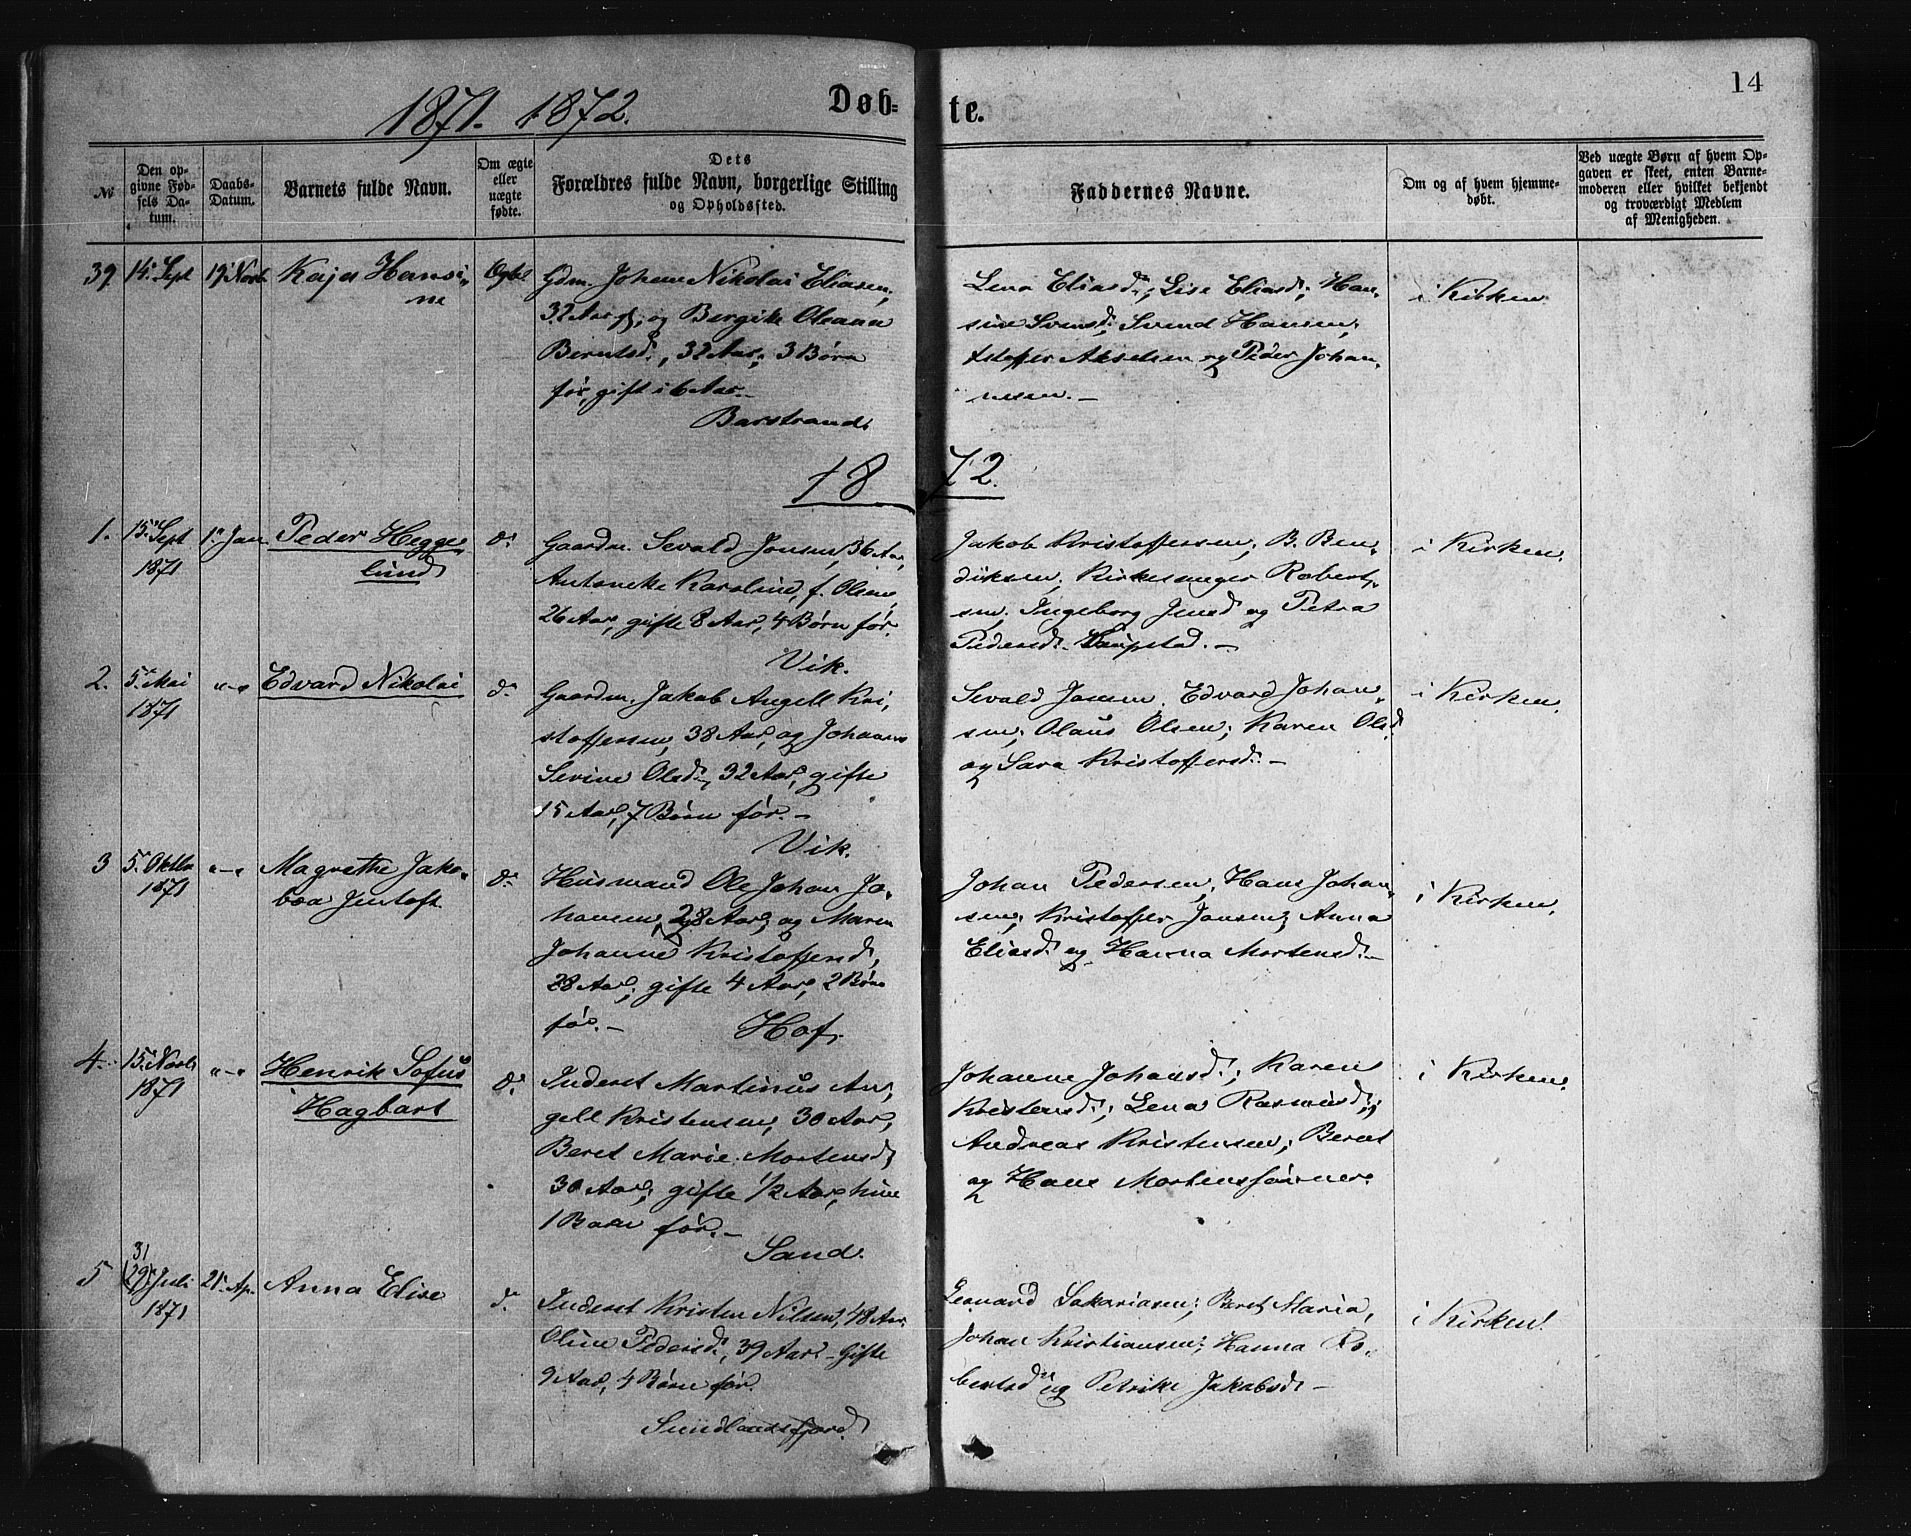 14
1871. 1872.
Døb-
te.
№
Den op-
givne Fød-
sels Da-
tum.
Daabs-
Datum.
Barnets fulde Navn.
Om ægte
eller
uægte
fødte.
Dets
Forældres fulde Navn, borgerlige Stilling
og Opholdssted.
Faddernes Navne.
Om og af hvem hjemme-
døbt.
Ved uægte Børn af hvem Op-
gaven er skeet, enten Barne-
moderen eller hvilket bekjendt
og troværdigt Medlem
af Menigheden.
39. 14. Sept 19. Novb. Kaja Hansi-
ne
Gdm. Johan Nikolai Eliasen,
32 Aar, og Bergite Oleana
Berntsd., 32 Aar, 3 Børn
før, gift i 6 Aar. -
Barstrand.
Lena Eliasd.; Lise Eliasd.; Han-
sine Svensd; Svend Hansen;
Akselsen og Peder Johan-
nesen. -
i Kirken
1872.
1. 15. Sept 1. Jan. Peder Hegge-
1871
lund
d.
Gaardm. Sevald Jonsen, 36 Aar,
Antonette Karoline, f. Olsen,
26 Aar, gifte 8 Aar, 4 Børn før.
Vik.
Jakob Kristoffersen, B. Ben-
diksen, Kirkesanger Robert-
sen, Ingeborg Jensd og Petra
Pedersd. -
i Kirken.
2. 5. Mai "-" Edvard Nikolai
1871
d.
Gaardm. Jakob Angell Kri-
stoffersen, 38 Aar, og Johanna
Sevine Olsd., 32 Aar, gifte
15 Aar, 7 Børn før. -
Vik.
Sevald Jonsen, Edvard Johan-
sen; Olaus Olsen; Karen Olsd
og Sara Kristoffersd. -
i Kirken.
3 5. Oktbr "-" Magrethe Jako-
1871
bea Jentoft
d.
Husmand Ole Johan Jo-
hansen, 28 Aar, og Maren
Johanne Kristoffersd,
28 Aar; gifte 4 Aar, 2 Børn
før. -
Hof.
Johan Pedersen, Hans Johan-
sen, Kristoffer Jonsen; Anna
Eliasd. og Hanna Mortensd. -
i Kirken.
4. 15. Novb "-" Henrik Sofus
1871
Hagbart
d.
Inderst Martinus An-
gell Kristensen, 30 Aar,
Beret Marie Mortensd,
30 Aar; gifte 1/2 Aar, hun
1 Barn før. -
Sand.
Johanne Johansd.; Karen
Kristensd.; Lena Rasmusd.;
Andreas Kristensen; Beret
og Hans Mortens
i Kirken.
31
5 (29) Juli 21. Ap. Anna Elise
1871
d.
Inderst Kristen Nilsen, 48 Aar.
Oline Pedersd., 39 Aar - Gifte
9 Aar, 4 Børn før.
Sundlandsfjord
Leonard Sakariasen; Beret Maria,
Johan Kristiansen; Hanna Ro-
bertsd og Petrike Jakobsd. -
i Kirken.